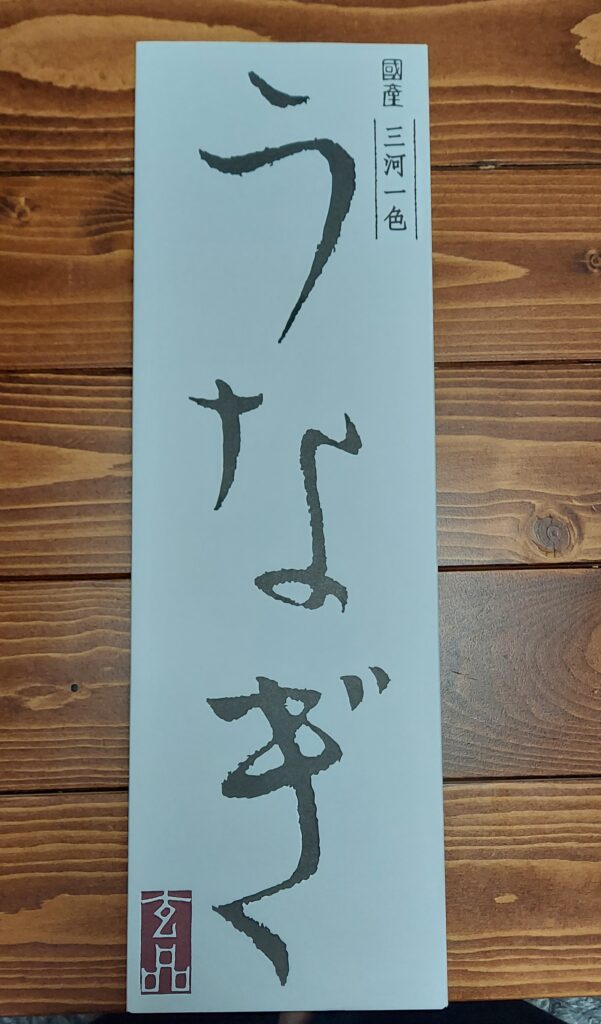 國產
三河一色
うなぎ
玄品